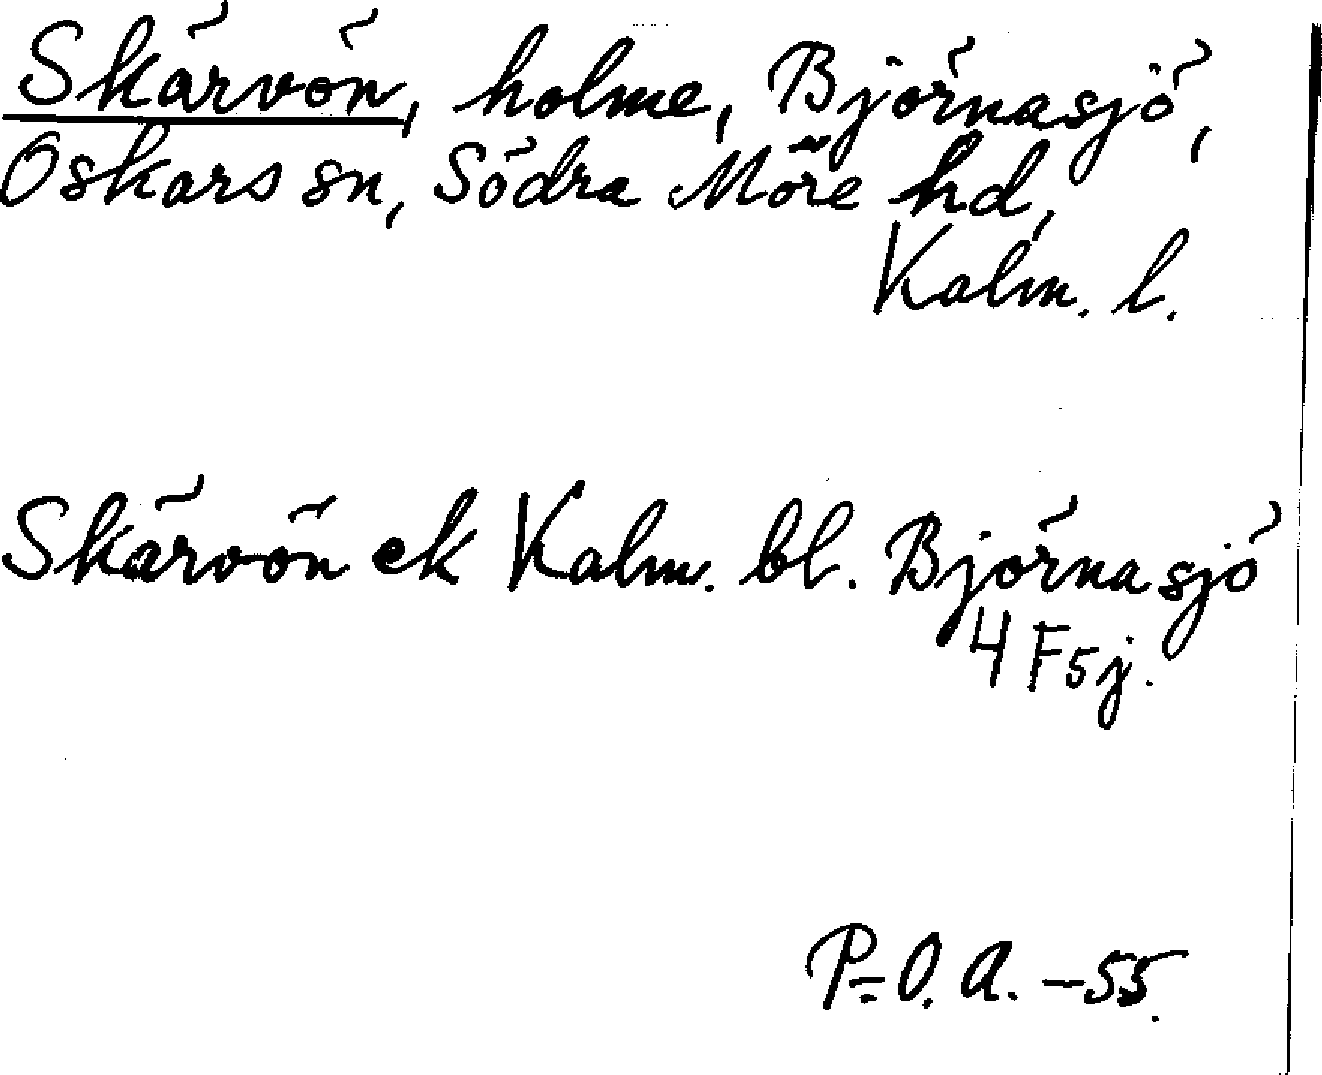 Skärvön, holme, Björnasjö,
Oskars sn, Södra Möre hd,
Kalm. l.
Skärvön ek Kalm. bl. Björnasjö
4 F5j.
P-O. A. -55.